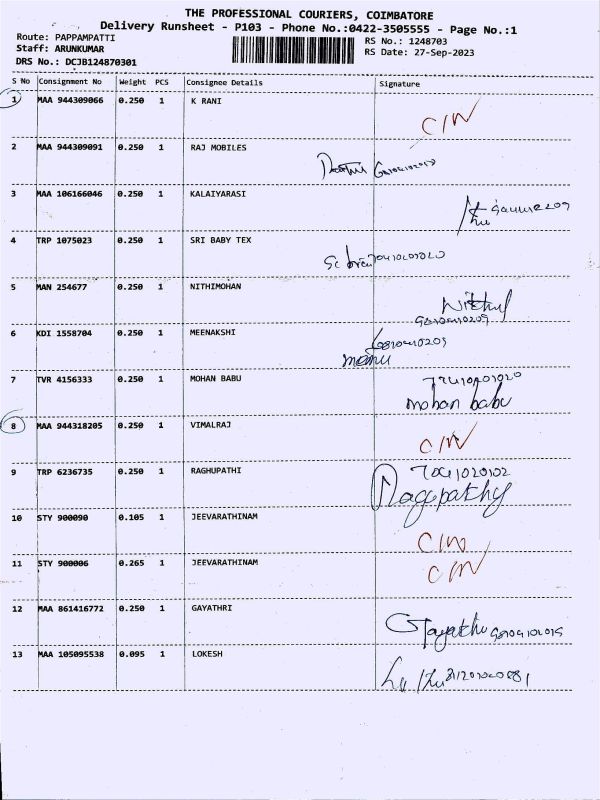 THE PROFESSIONAL COURIERS, COIMBATORE
Delivery Runsheet - P103 - Phone No.:0422-3505555 - Page No.:1
Route: PAPPAMPATTI
RS No.: 1248703
Staff: ARUNKUMAR
RS Date: 27-Sep-2023
DRS No.: DCJB124870301
S No Consignment No Weight PCS Consignee Details Signature
1 MAA 944309066 0.250 1 K RANI
C/N
2 MAA 944309091 0.250 1 RAJ MOBILES
3 MAA 106166046 0.250 1 KALAIYARASI
4 TRP 1075023 0.250 1 SRI BABY TEX
5 MAN 254677 0.250 1 NITHIMOHAN
6 KDI 1558704 0.250 1 MEENAKSHI
7 TVR 4156333 0.250 1 MOHAN BABU
mohan babu
8 MAA 944318205 0.250 1 VIMALRAJ
C/N
9 TRP 6236735 0.250 1 RAGHUPATHI
10 STY 900090 0.105 1 JEEVARATHINAM
C/N
11 STY 900006 0.265 1 JEEVARATHINAM
C/N
12 MAA 861416772 0.250 1 GAYATHRI
13 MAA 105095538 0.095 1 LOKESH